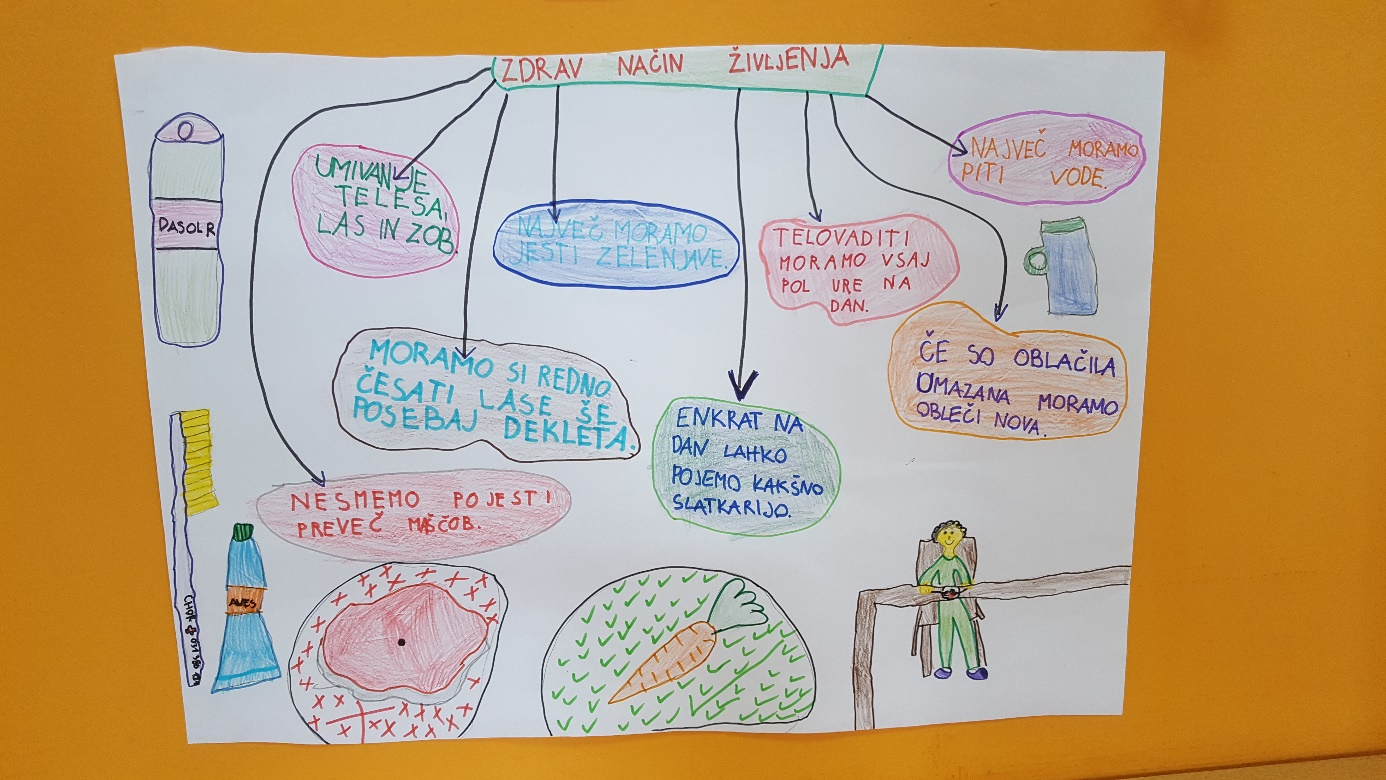 ZDRAV NAČIN ŽIVLJENJA
UMIVANJE
TELESA,
LAS IN ZOB.
NAJVEČ MORAMO
JESTI ZELENJAVE.
TELOVADITI
MORAMO VSAJ
POL URE NA
DAN.
NAJVEČ MORAMO
PITI VODE.
DASOLR
MORAMO SI REDNO
ČESATI LASE ŠE
POSEBAJ DEKLETA.
ENKRAT NA
DAN LAHKO
POJEMO KAKŠNO
SLATKARIJO.
ČE SO OBLAČILA
UMAZANA MORAMO
OBLEČI NOVA.
NESMEMO POJESTI
PREVEČ MAŠČOB.